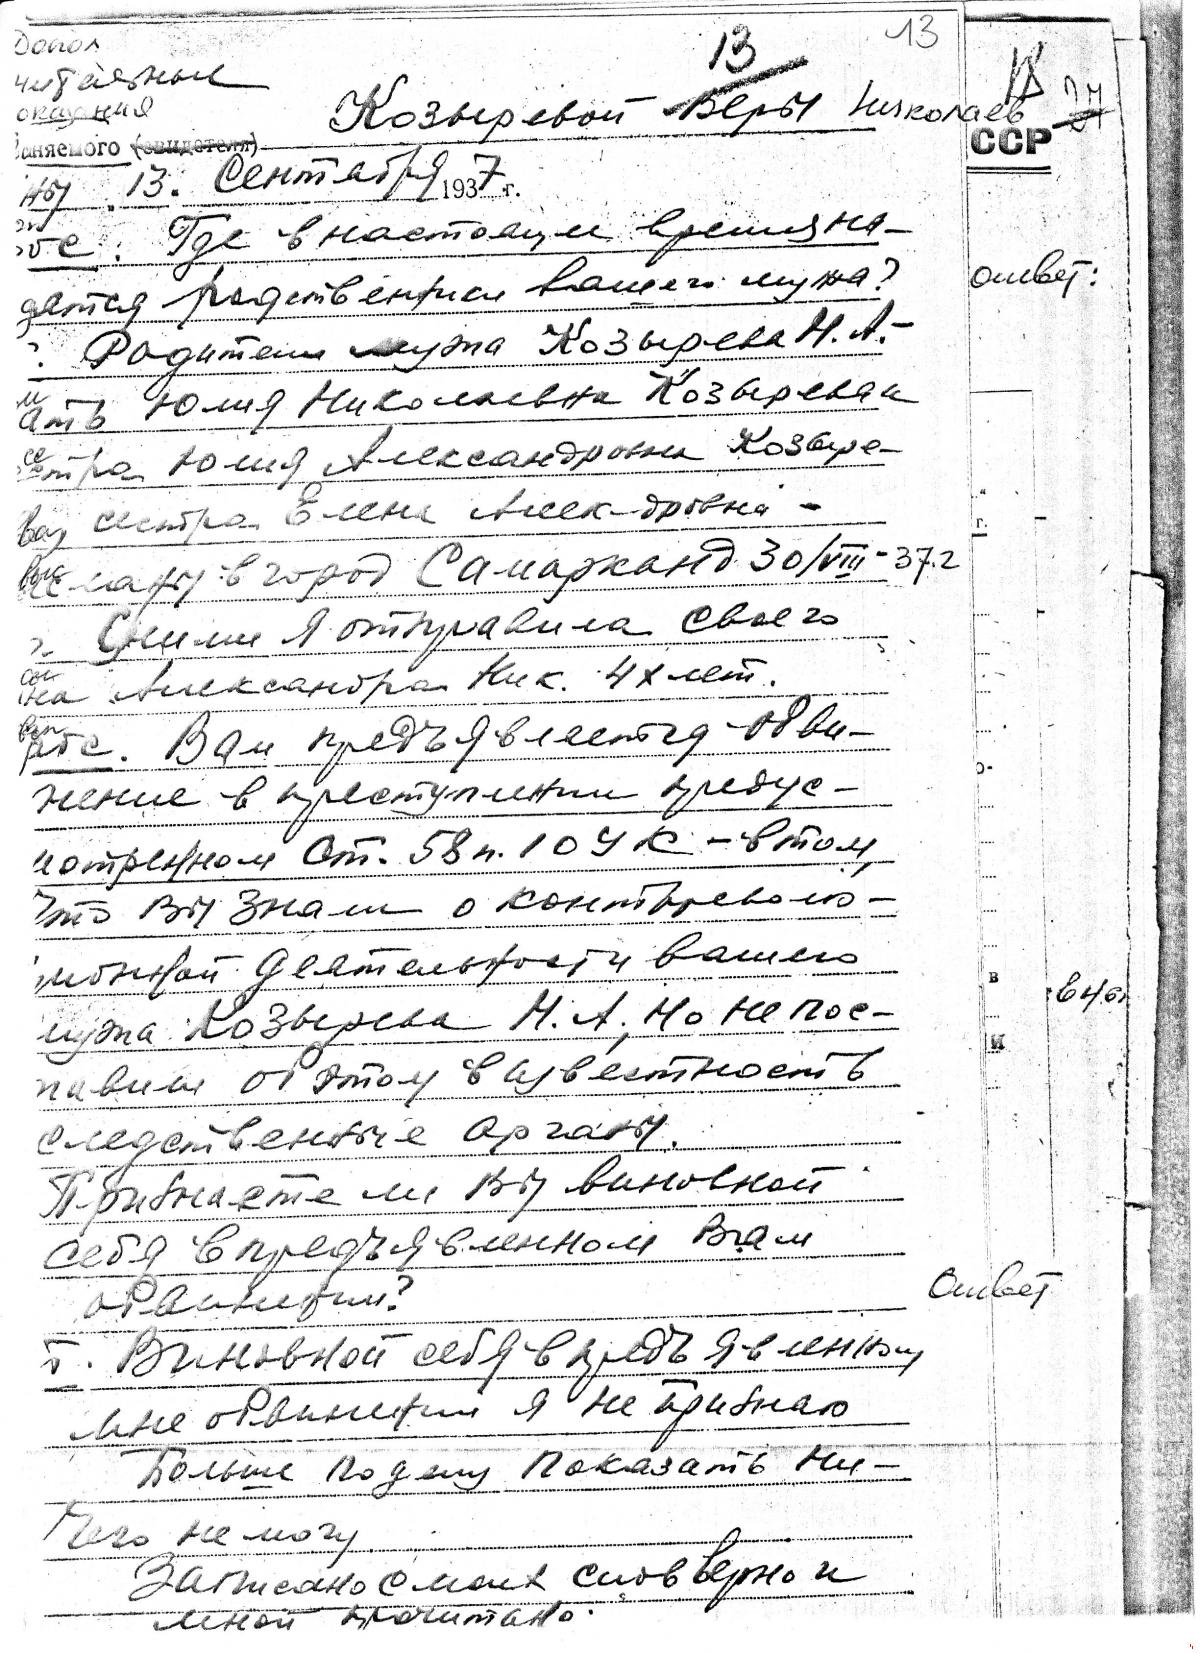 13
13
Допол
нительные
показания
Козыревой Веры Николаев
18
27
ССР
няемого (свидетеля)
ны 13. Сентября 1937 г.
вопрос: Где в настоящее время на-
дятся родственники вашего мужа?
ответ:
Родители мужа Козырева Н. А. -
мать Юлия Николаевна Козырева и
сестра Юлия Александровна Козыре-
ва, сестра Елена Алек-дровна -
высланы в город Самарканд 30/VIII-37.г
г.
С ними я отправила своего
сына Александра Ник. 4х лет.
вопрос. Вам предъявляется обви-
нение в преступлении предус-
мотренном ст. 58 п. 10 УК - в том,
что Вы знали о контрреволю-
ционной деятельности вашего
в
мужа Козырева Н. А., но не пос-
и
тавили об этом в известность
следственные органы.
Признаете ли Вы виновной
себя в предъявленном Вам
обвинении?
Ответ
т. Виновной себя в предъявленном
мне обвинении я не признаю
Больше по делу показать ни-
чего не могу
Записано с моих слов верно и
мной прочитано.